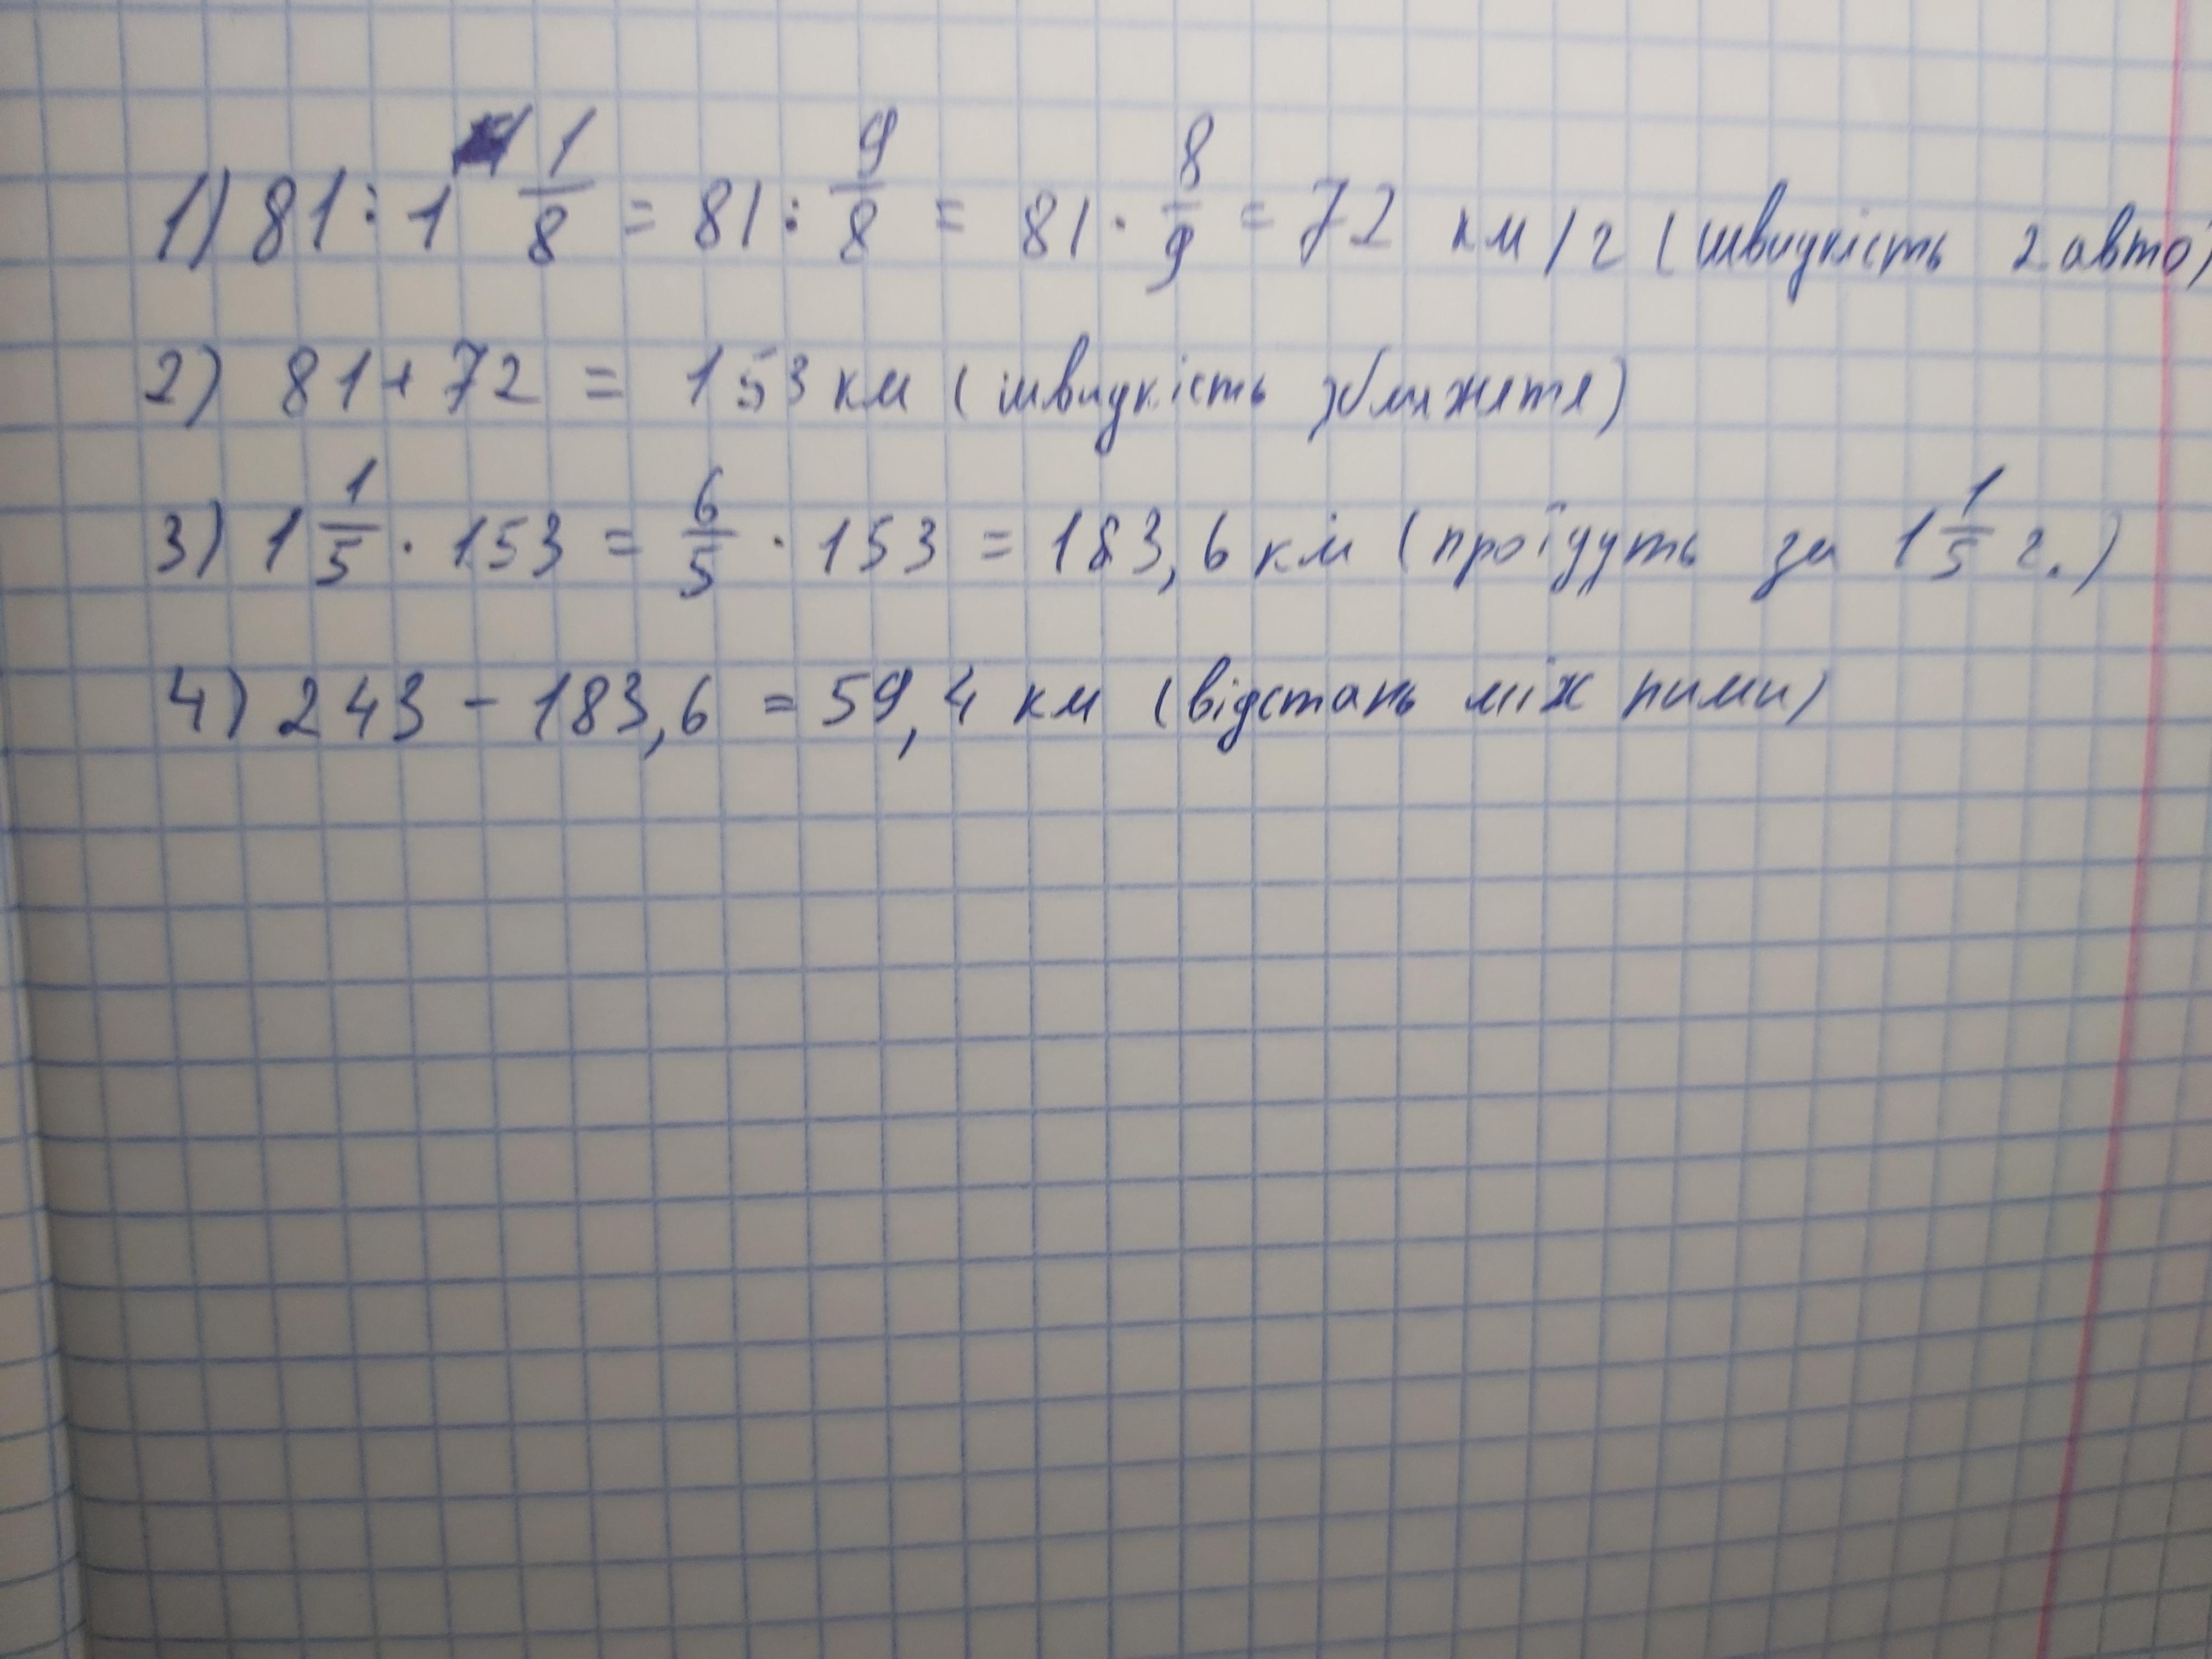 1) 81 : 1 1/8 = 81 : 9/8 = 81 · 8/9 = 72 км/г (швидкість 2 авто)
2) 81 + 72 = 153 км (швидкість зближетя)
3) 1 1/5 · 153 = 6/5 · 153 = 183,6 км (проїдуть за 1 1/5 г.)
4) 243 - 183,6 = 59,4 км (відстань між ними)